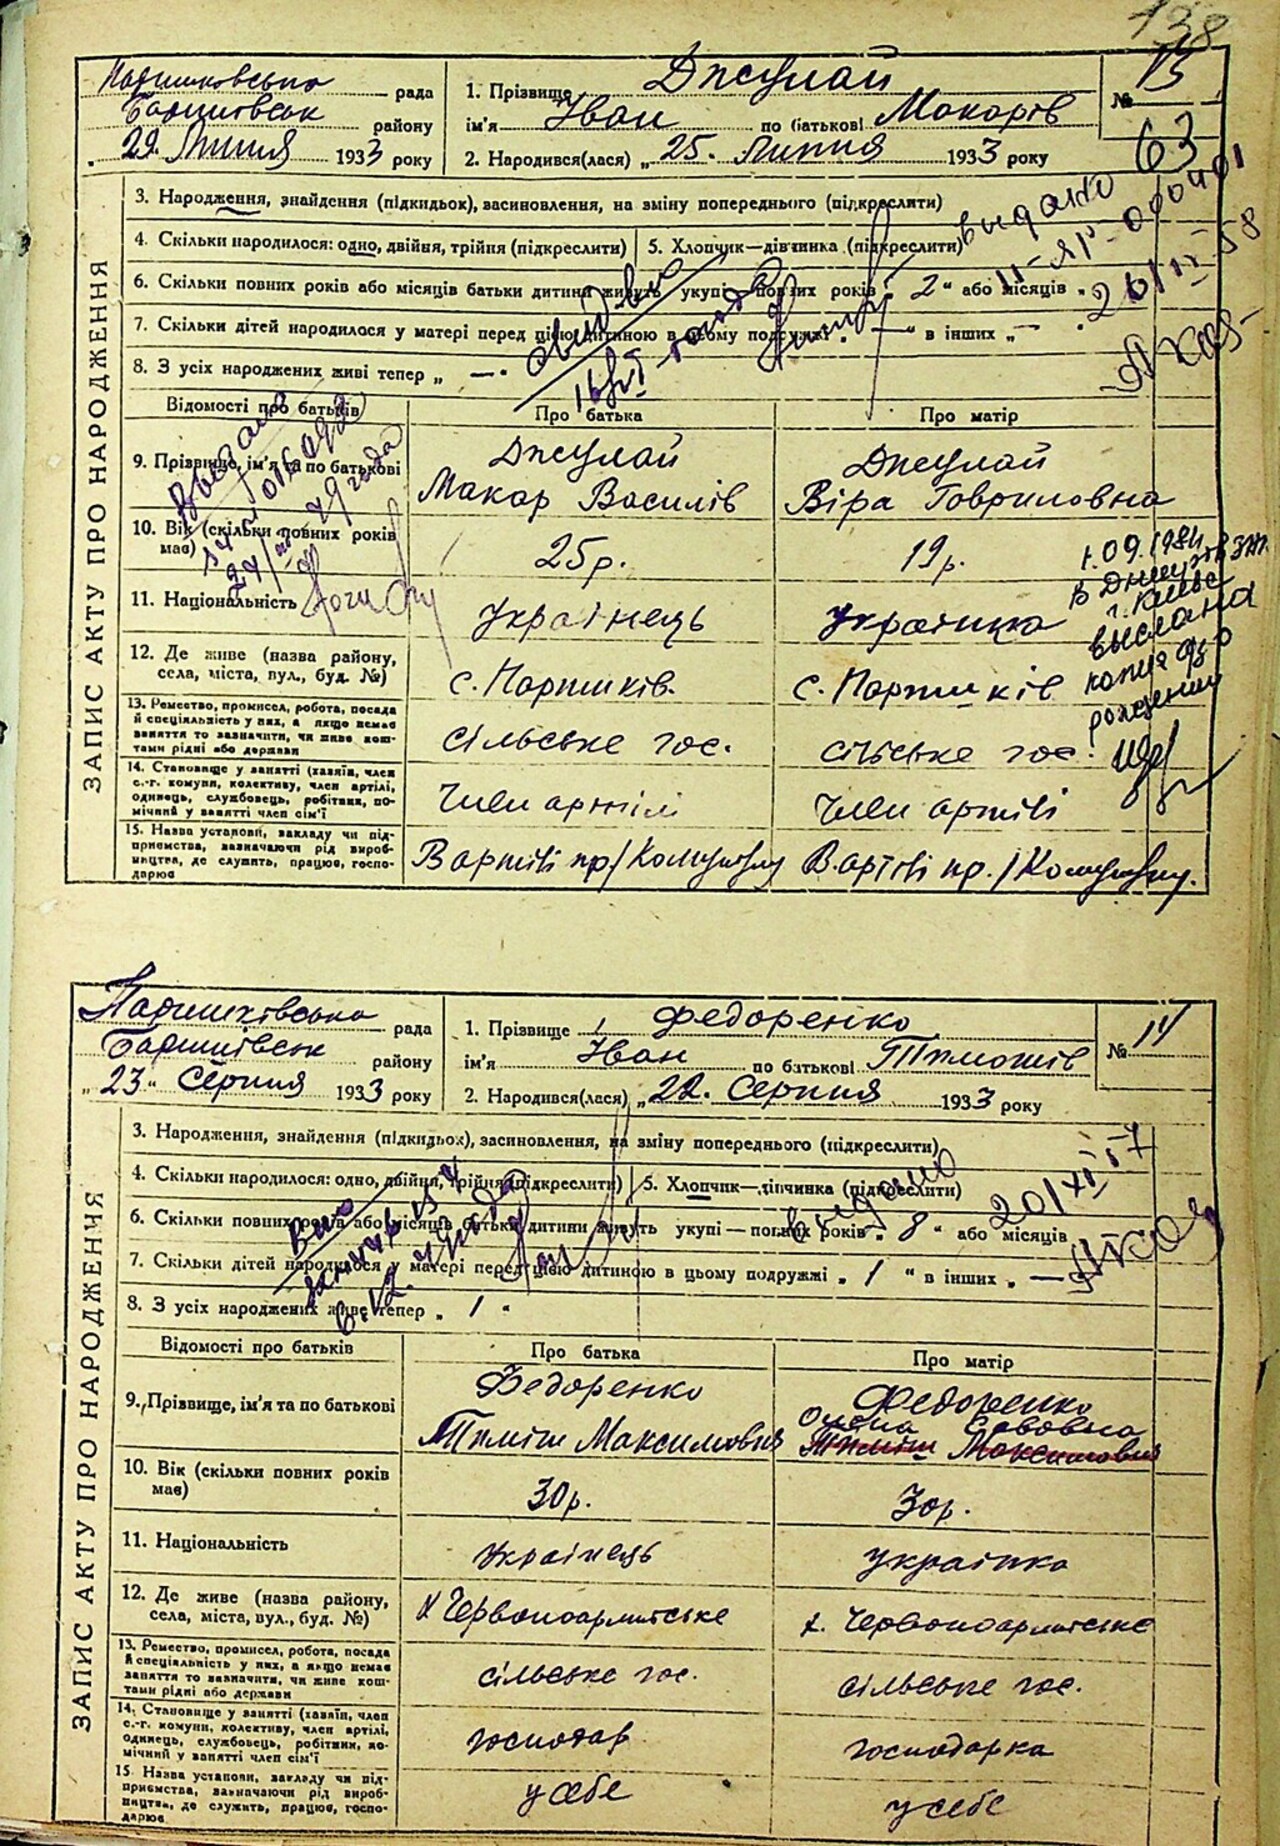 138
Паришковська рада
Баришівськ району
„ 29. Липня 1933 року
1. Прізвище Джулай
ім'я Іван по батькові Макарів
2. Народився(лася) „ 25. Липня 1933 року
№ 13
63
3. Народження, знайдення (підкидьок), засиновлення, на зміну попереднього (підкреслити)
4. Скільки народилося: одно, двійня, трійня (підкреслити) 5. Хлопчик—дівчинка (підкреслити)
6. Скільки повних років або місяців батьки дитини живуть укупі — повних років „ 2 “ або місяців „
7. Скільки дітей народилося у матері перед цією дитиною в цьому подружжі „ — “ в інших „ —
8. З усіх народжених живі тепер „ —
видано
II-ЯР-
26/II-58
Відомості про батьків Про батька Про матір
9. Прізвище, ім'я та по батькові
Джулай Джулай
Макар Василів Віра Гавриловна
10. Вік (скільки повних років має) 25р. 19р.
11. Національність Українець українка
12. Де живе (назва району, села, міста, вул., буд. №) с. Паришків. с. Паришків
13. Ремество, промисел, робота, посада й спеціальність у них, а якщо немає заняття то зазначити, чи живе коштами рідні або держави
сільське гос. сільське гос.
14. Становище у занятті (хазяїн, член с.-г. комуни, колективу, член артілі, одинець, службовець, робітник, помічний у занятті член сім'ї
Член артілі Член артілі
15. Назва установи, закладу чи підприємства, зазначаючи рід виробництва, де служить, працює, господарює
В артілі
В артілі
1.09.1984
г. Киева
выслана
копия
рождении
ЗАПИС АКТУ ПРО НАРОДЖЕННЯ
Паришківська рада
Баришівськ району
„ 23 “ Серпня 1933 року
1. Прізвище Федоренко
ім'я Іван по батькові Тимошів
2. Народився(лася) „ 22. Серпня 1933 року
№ 14
3. Народження, знайдення (підкидьок), засиновлення, на зміну попереднього (підкреслити)
4. Скільки народилося: одно, двійня, трійня (підкреслити) 5. Хлопчик—дівчинка (підкреслити)
6. Скільки повних років або місяців батьки дитини живуть укупі — повних років „ 8 “ або місяців
7. Скільки дітей народилося у матері перед цією дитиною в цьому подружжі „ 1 “ в інших „ —
8. З усіх народжених живе тепер „ 1 “
видано
20/XI 57
Відомості про батьків Про батька Про матір
9. Прізвище, ім'я та по батькові
Федоренко Федоренко
Тиміш Максимович
10. Вік (скільки повних років має) 30р. 30р.
11. Національність Українець українка
12. Де живе (назва району, села, міста, вул., буд. №) х Червоноармійське х. Червоноармійське
13. Ремество, промисел, робота, посада й спеціальність у них, а якщо немає заняття то зазначити, чи живе коштами рідні або держави
сільське гос. сільське гос.
14. Становище у занятті (хазяїн, член с.-г. комуни, колективу, член артілі, одинець, службовець, робітник, помічний у занятті член сім'ї
господар господарка
15. Назва установи, закладу чи підприємства, зазначаючи рід виробництва, де служить, працює, господарює
у себе у себе
ЗАПИС АКТУ ПРО НАРОДЖЕННЯ